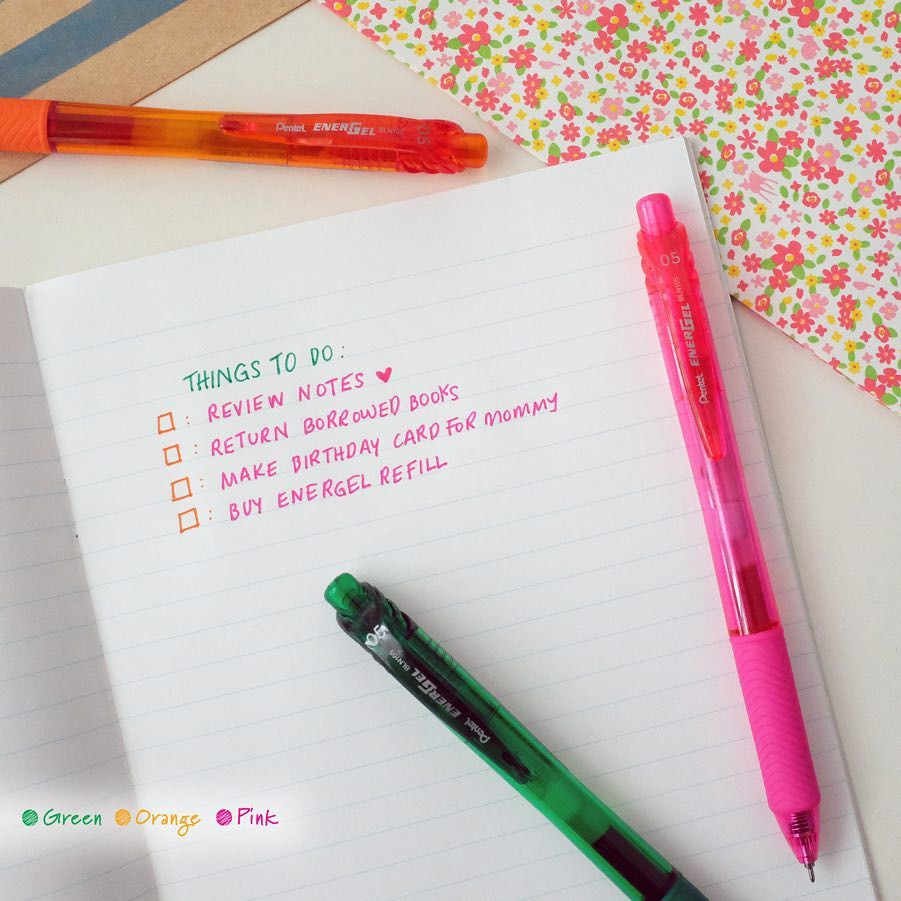 Pentel ENERGEL BLN105 05
05
Pentel ENERGEL BLN105
THINGS TO DO:
: REVIEW NOTES ♥
: RETURN BORROWED BOOKS
: MAKE BIRTHDAY CARD FOR MOMMY
: BUY ENERGEL REFILL
05
Pentel ENERGEL BLN105
Green Orange Pink